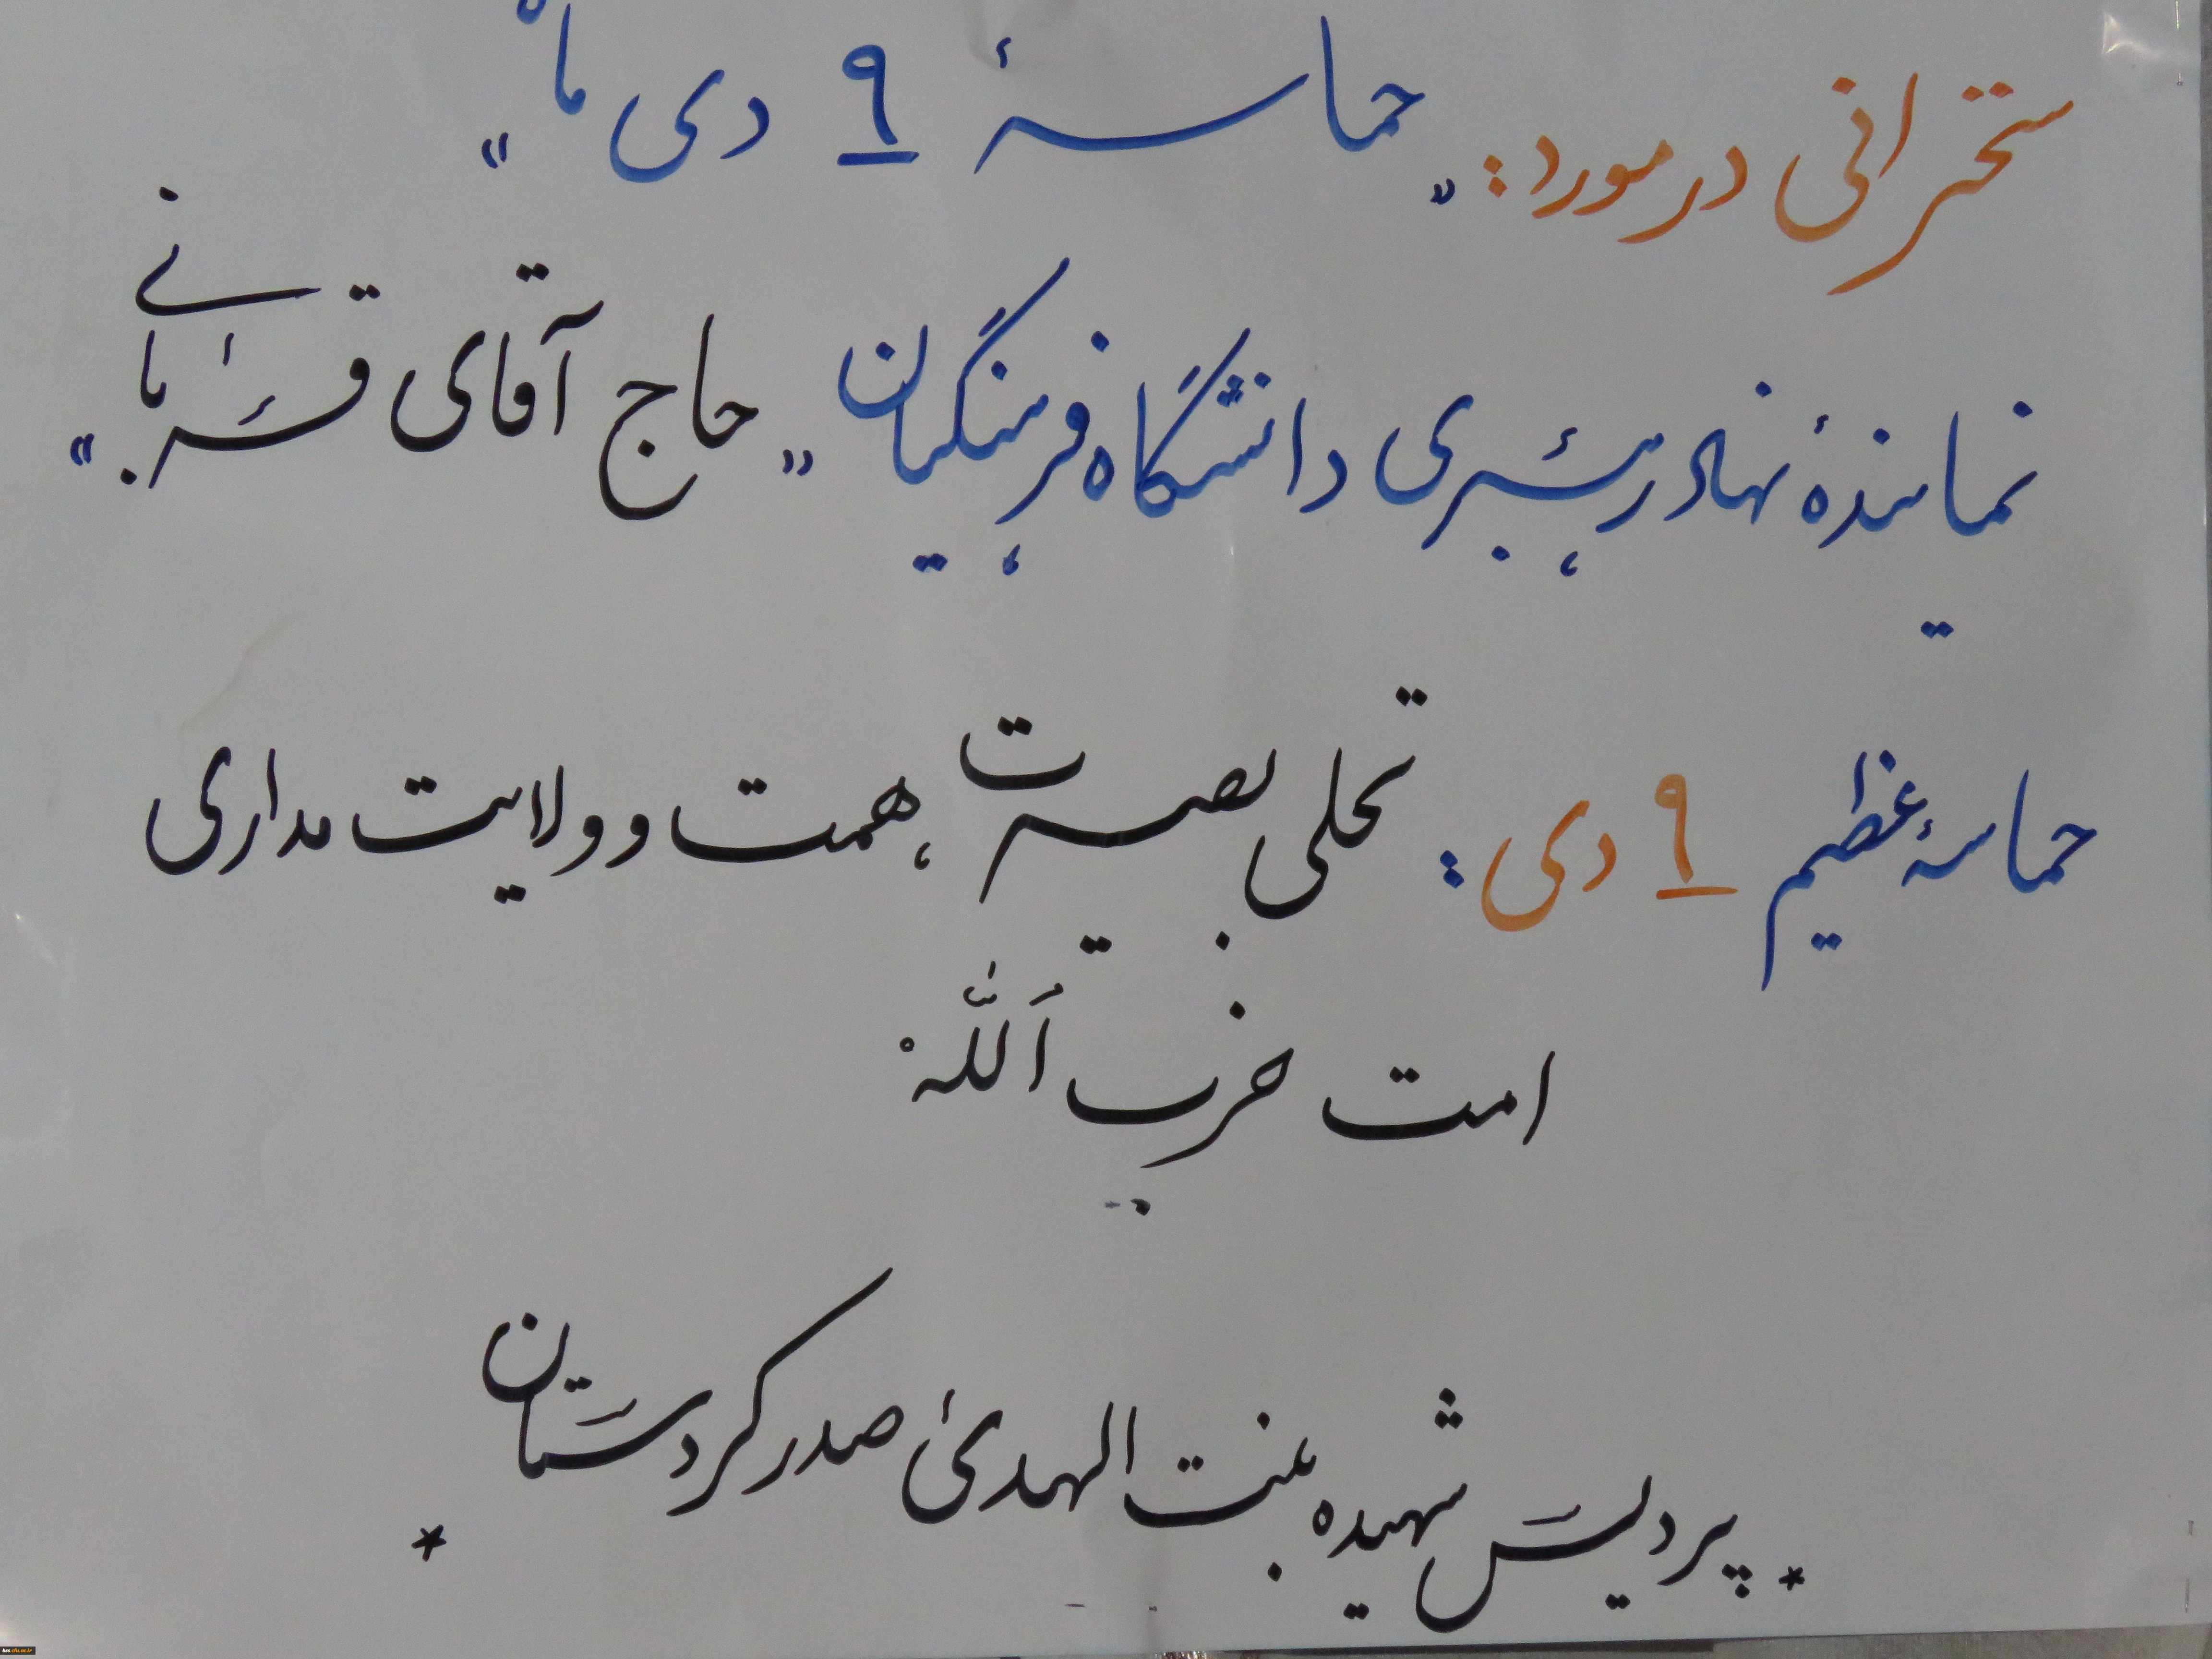 سخنرانی در مورد: «حماسهٔ ۹ دی ماه»
نمایندهٔ نهاد رهبری دانشگاه فرهنگیان «حاج آقای قربانی»
حماسهٔ عظیم ۹ دی: تجلی بصیرت، همت و ولایت مداری
امت حزب اَللّٰه
* پردیس شهیده بنت الهدیٰ صدر کردستان *